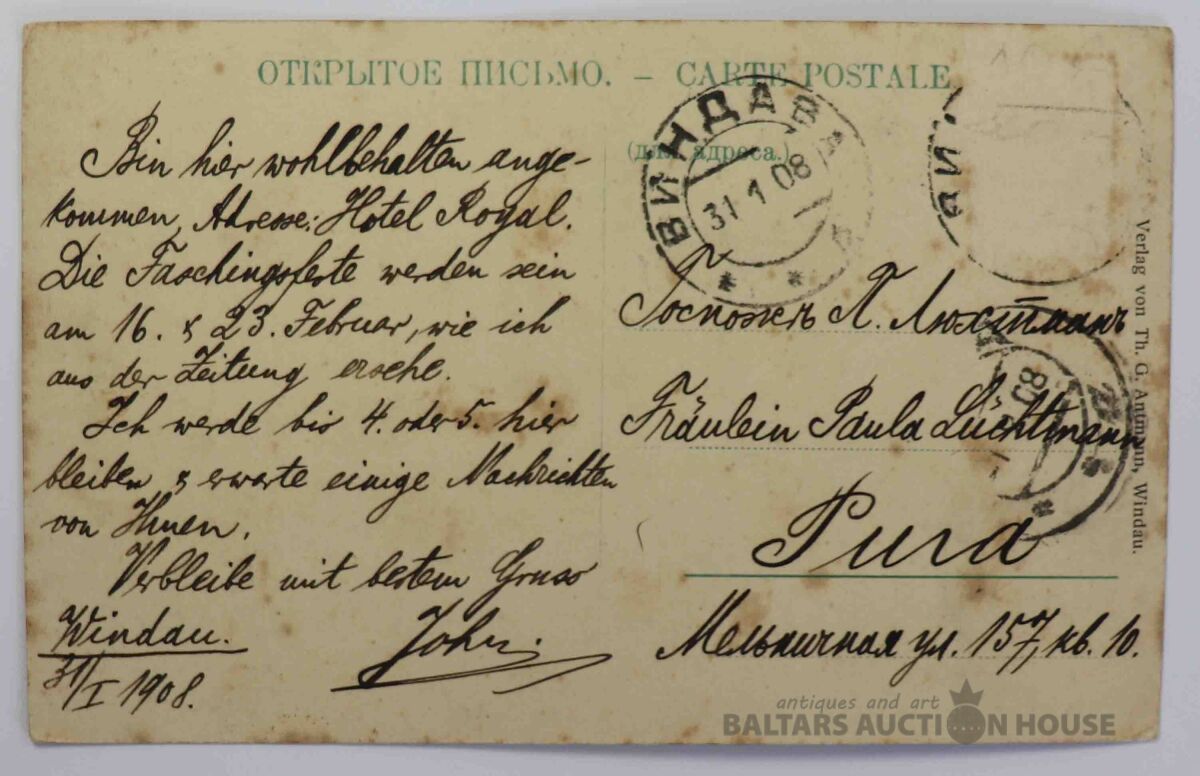 ОТКРЫТОЕ ПИСЬМО. – CARTE POSTALE
(для адреса.)
Bin hier wohlbehalten ange-
kommen, Adresse: Hotel Royal.
Die Faschingsfeste werden sein
am 16. & 23. Februar, wie ich
aus der Zeitung ersehe.
Ich werde bis 4. oder 5. hier
bleiben & erwarte einige Nachrichten
von Ihnen.
Verbleibe mit bestem Gruss
John.
Windau.
31/I 1908.
ВИНДАВА
31 1 08
Госпожѣ П. Люхтманъ
Fräulein Paula Lüchtmann
Рига
Мельничная ул. 157, кв. 10.
08
Verlag von Th. G. Antmann, Windau.
antiques and art
BALTARS AUCTION HOUSE